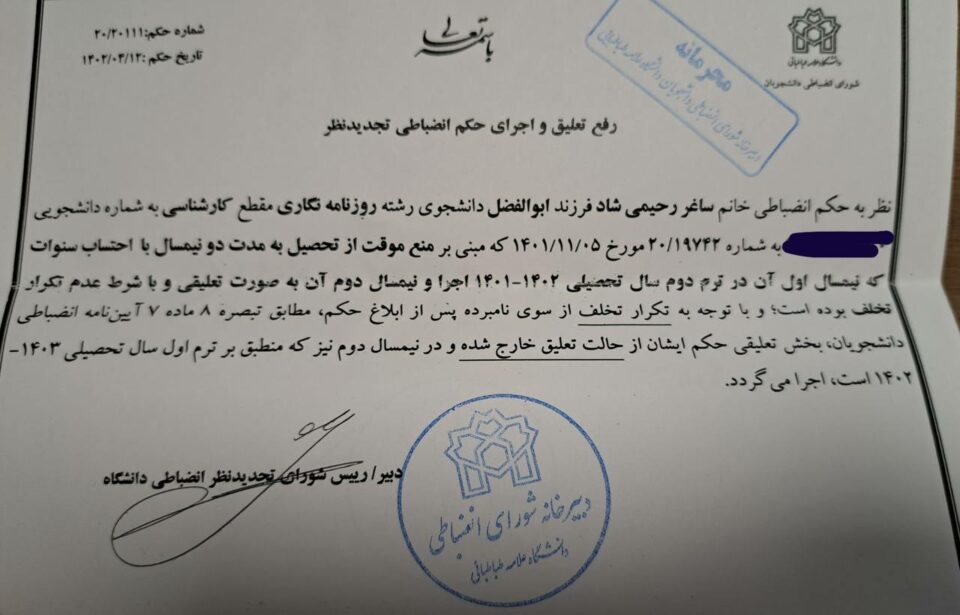 باسمه تعالی
شماره حکم:۲۰/۲۰۱۱۱
تاریخ حکم :۱۴۰۲/۰۴/۱۲
دانشگاه علامه طباطبائی
شورای انضباطی دانشجویان
محرمانه
دبیرخانه شورای انضباطی دانشجویان دانشگاه علامه طباطبایی
رفع تعلیق و اجرای حکم انضباطی تجدیدنظر
نظر به حکم انضباطی خانم ساغر رحیمی شاد فرزند ابوالفضل دانشجوی رشته روزنامه نگاری مقطع کارشناسی به شماره دانشجویی
به شماره ۲۰/۱۹۷۴۲ مورخ ۱۴۰۱/۱۱/۰۵ که مبنی بر منع موقت از تحصیل به مدت دو نیمسال با احتساب سنوات
که نیمسال اول آن در ترم دوم سال تحصیلی ۱۴۰۲-۱۴۰۱ اجرا و نیمسال دوم آن به صورت تعلیقی و با شرط عدم تکرار
تخلف بوده است؛ و با توجه به تکرار تخلف از سوی نامبرده پس از ابلاغ حکم، مطابق تبصره ۸ ماده ۷ آیین‌نامه انضباطی
دانشجویان، بخش تعلیقی حکم ایشان از حالت تعلیق خارج شده و در نیمسال دوم نیز که منطبق بر ترم اول سال تحصیلی ۱۴۰۳-
۱۴۰۲ است، اجرا می گردد.
دبیر/ رییس شورای تجدیدنظر انضباطی دانشگاه
دبیرخانه شورای انضباطی
دانشگاه علامه طباطبائی